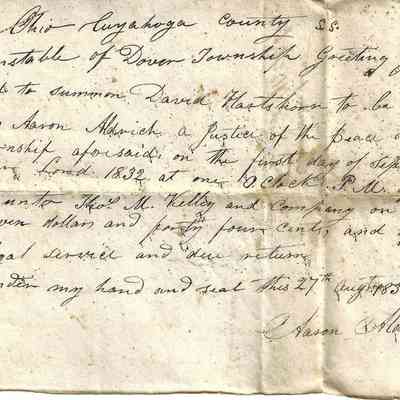 Ohio Cuyahoga County SS.
nstable of Dover Township Greeting
to summon David Hartshorn to be
Aaron Aldrich a Justice of the Peace
wnship aforesaid on the first day of Sep
Lord 1832 at one O Clock P.M.
unto Thos. M. Kelley and Company on
ven dollars and forty four cents, and
gal service and due return
nder my hand and seal this 27th augt 183
Aaron Al